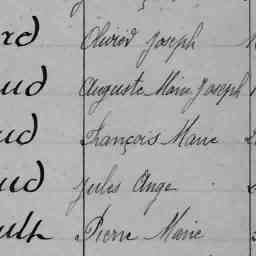 rd Olivier Joseph
ud Auguste Marie Joseph
ud François Marie
ud Jules Ange
ult Pierre Marie